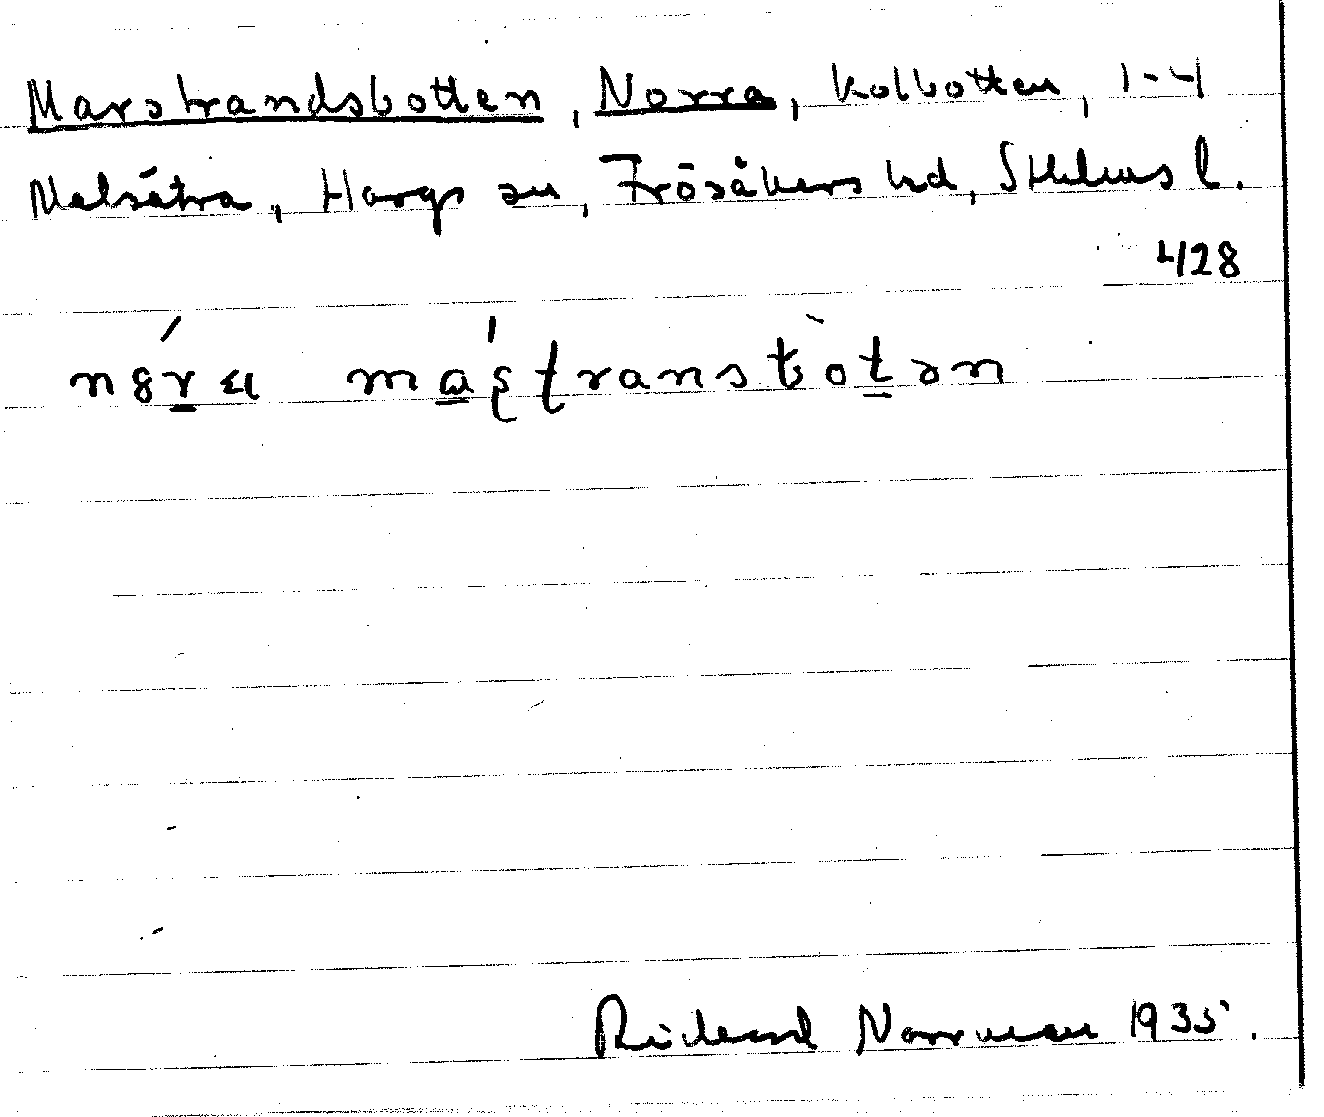 Marstrandsbotten, Norra, kolbotten, 1-4
Malsätra, Hargs sn, Frösåkers hd, Sthlms l.
428
Rickard Norrman 1935.